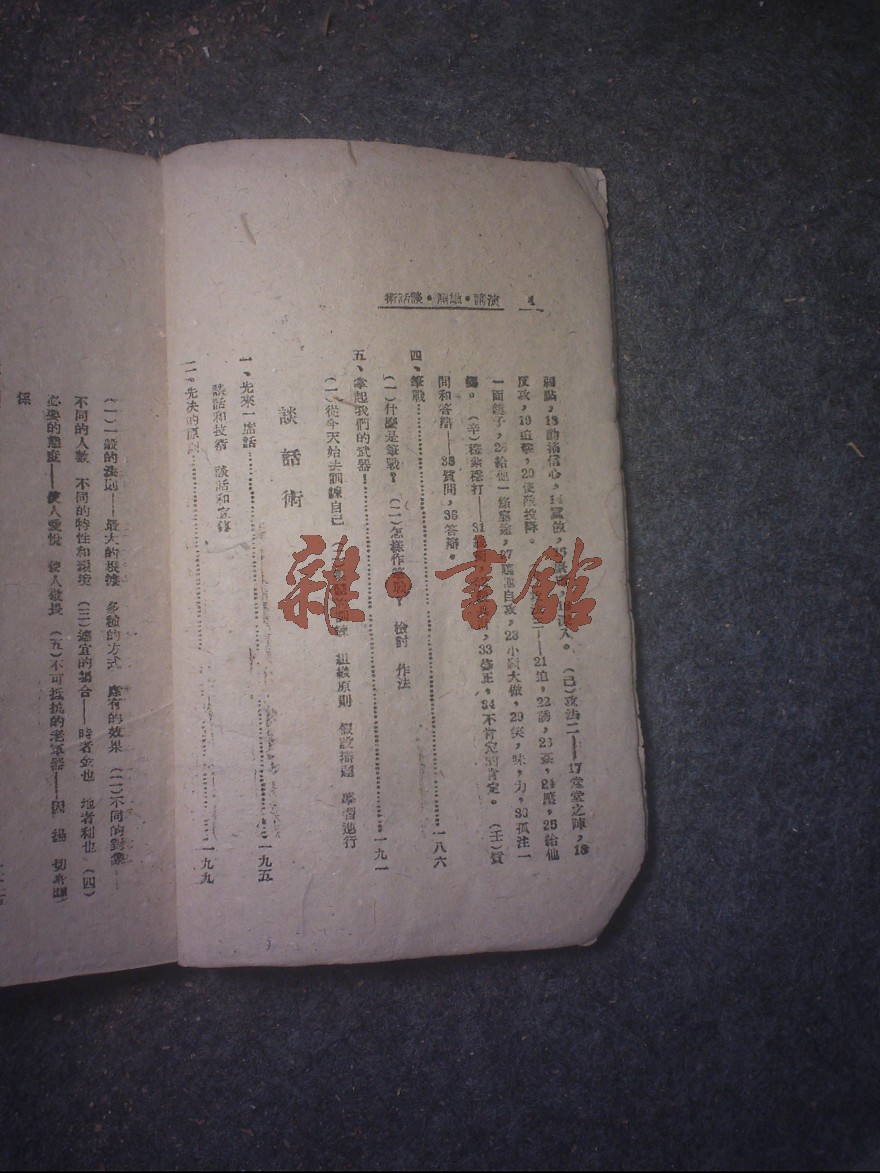 術話談•論辯•講演 4
弱點,13動搖信心,14罵倒,
(己)攻法二——17堂堂之陣,18
反攻,19追擊,20使敵投降。
——21迫,22誘,23套,24磨,25給他
一面鏡子,26給他一條窄途,27 自攻,28小題大做,29笑,味,力,30孤注一
擲。(辛)穩紮穩打——31
33修正,34不肯定到肯定。(壬)質
問和答辯——35質問,36答辯。
四、筆戰……一八六
(一)什麼是筆戰?(二)怎樣作筆戰? 檢討 作法
五、拿起我們的武器!……一九一
(一)從今天始去訓練自己 組織原則 假設播題 學習進行
談話術
一、先來一席話……一九五
談話和技術 談話和宣傳
二、先决的原則……一九九
(一)一般的法則——最大的 多種的方式 應有的效果 (二)不同的對象——
不同的人數 不同的特性和環境 (三)適宜的場合——時者金也 地者利也 (四)
必要的態度——使人愛悅 使人敬畏 (五)不可抵抗的老軍器——因
係
雜•書館